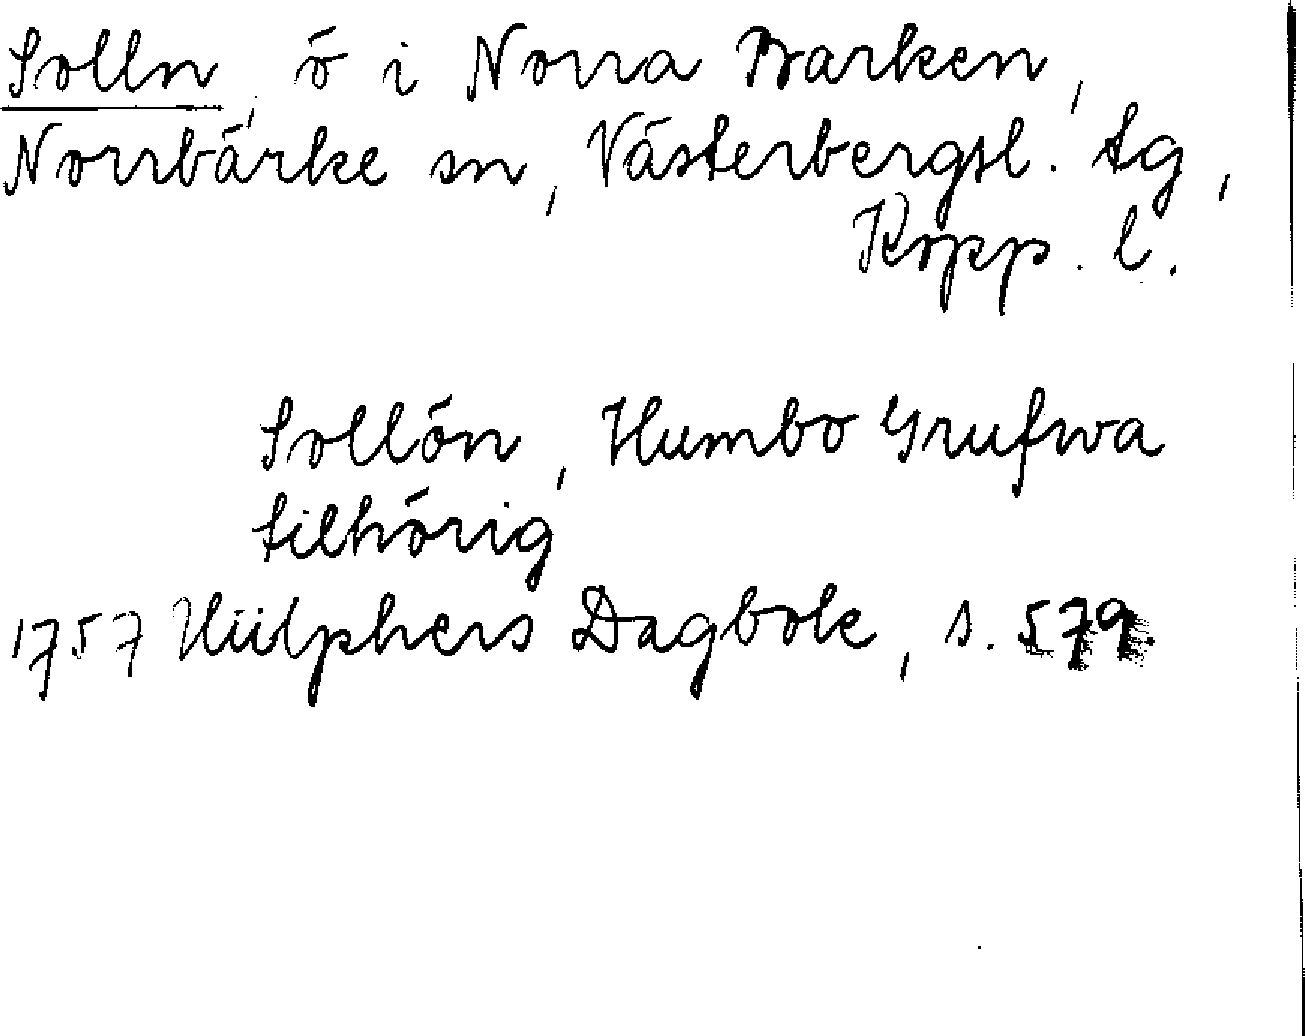 Solln, ö i Norra Barken,
Norrbärke sn, Västerbergsl. tg,
Kopp. l.
Sollön, Humbo Grufwa
tilhörig
1757 Hülphers Dagbok, s. 579.